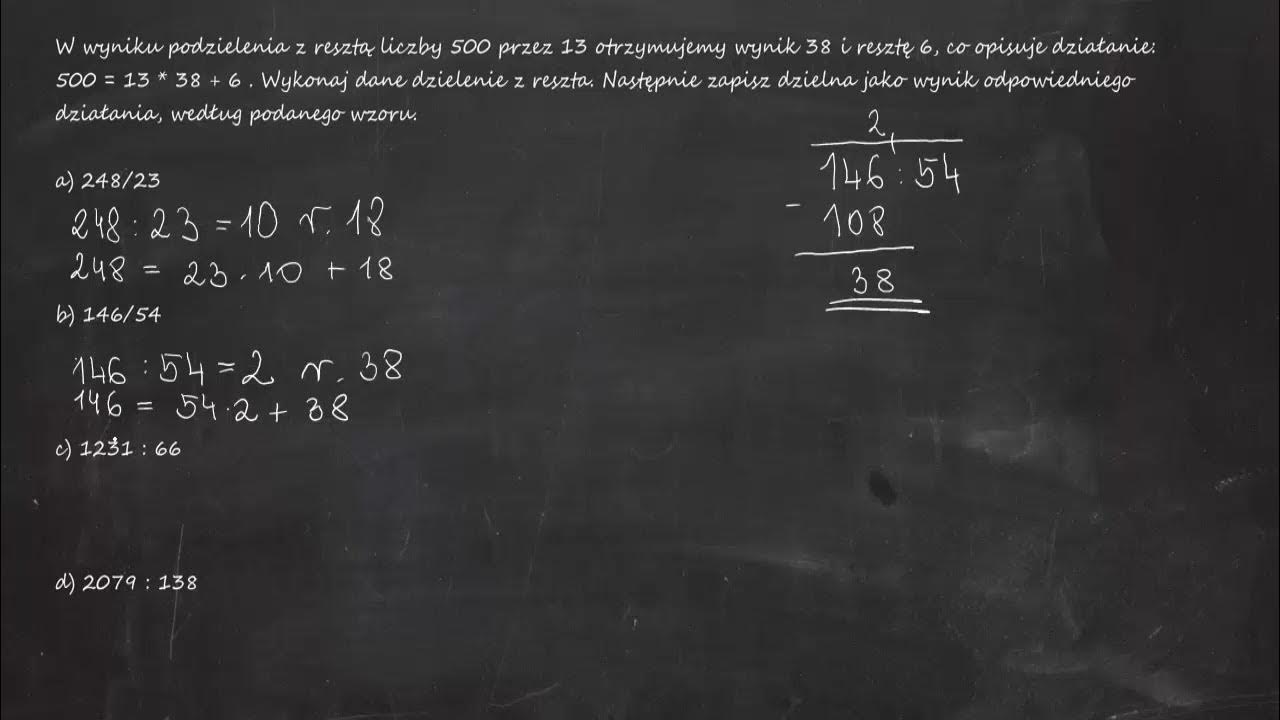 W wyniku podzielenia z resztą liczby 500 przez 13 otrzymujemy wynik 38 i resztę 6, co opisuje działanie:
500 = 13 * 38 + 6 . Wykonaj dane dzielenie z reszta. Następnie zapisz dzielna jako wynik odpowiedniego
działania, według podanego wzoru.
a) 248/23
248 : 23 = 10 r. 18
248 = 23 · 10 + 18
b) 146/54
146 : 54 = 2 r. 38
146 = 54 · 2 + 38
c) 1231 : 66
d) 2079 : 138
2
146 : 54
- 108
38